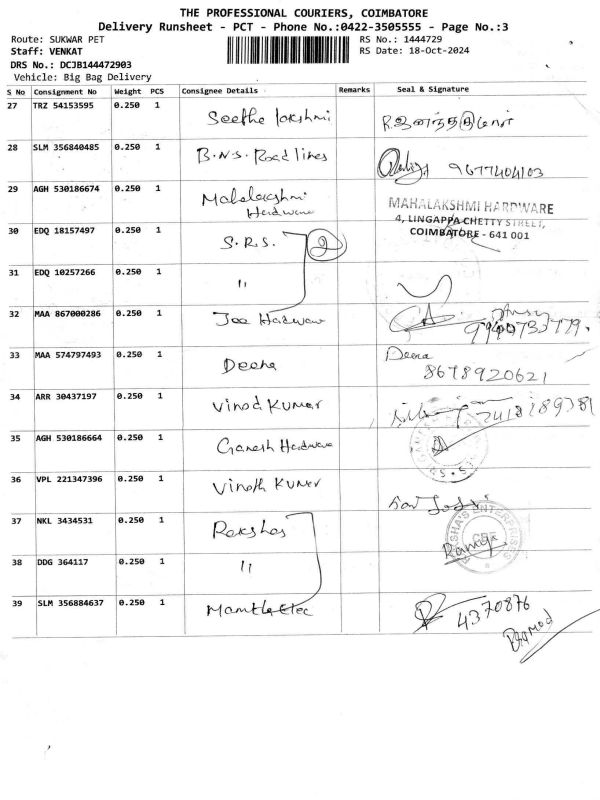 THE PROFESSIONAL COURIERS, COIMBATORE
Delivery Runsheet - PCT - Phone No.:0422-3505555 - Page No.:3
Route: SUKWAR PET
RS No.: 1444729
Staff: VENKAT
RS Date: 18-Oct-2024
DRS No.: DCJB144472903
Vehicle: Big Bag Delivery
S No Consignment No Weight PCS Consignee Details Remarks Seal & Signature
27 TRZ 54153595 0.250 1 Seethe lakshmi
28 SLM 356840485 0.250 1 B.N.S. Roadlines 9677404103
29 AGH 530186674 0.250 1 Mahalakshmi
Hardware
MAHALAKSHMI HARDWARE
4, LINGAPPA CHETTY STREET,
COIMBATORE - 641 001
30 EDQ 18157497 0.250 1 S.R.S. 2
31 EDQ 10257266 0.250 1 "
32 MAA 867000286 0.250 1 Jee Hardware
33 MAA 574797493 0.250 1 Deena Deena
8678920621
34 ARR 30437197 0.250 1 Vinod Kumar
35 AGH 530186664 0.250 1 Ganesh Hardware
36 VPL 221347396 0.250 1 Vinoth Kumar
37 NKL 3434531 0.250 1 Rakshas
38 DDG 364117 0.250 1 "
39 SLM 356884637 0.250 1 4370876
Pramod